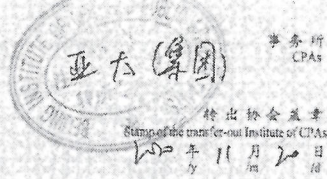 亚太(集团)
事务所
CPAs
转出协会盖章
Stamp of the transfer-out Institute of CPAs
年 11 月 20 日
/y /m /d